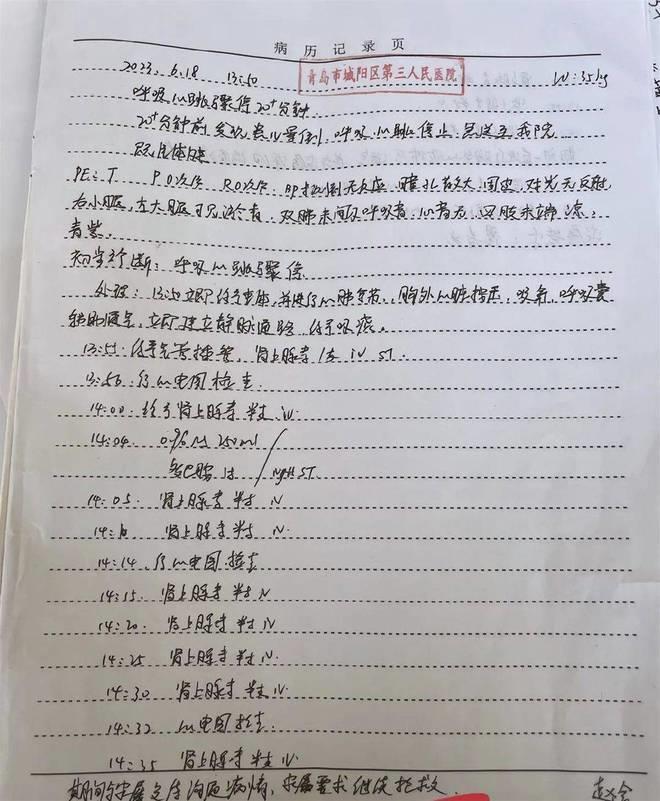 病历记录页
2023.6.18 13:50 青岛市城阳区第三人民医院 W:35kg
呼吸心跳骤停20+分钟
20+分钟前发现患儿晕倒,呼吸心跳停止,急送至我院
既往体健
PE:T P 0次/分 R 0次/分 BP 无反应,瞳孔散大,固定,对光无反射
双肺未闻及呼吸音,心音无,四肢末端凉,
青紫。
初步诊断:呼吸心跳骤停
处理:立即 并进行心肺复苏,胸外心脏按压,吸氧,呼吸囊
辅助通气,立即建立静脉通路,给予吸痰。
13:55 气管插管,肾上腺素 1支 iv ST.
13:56 行心电图检查.
14:00 给予肾上腺素 半支 iv
14:04 0.9% NS 250ml
多巴胺 ST
14:05. 肾上腺素 半支 iv
肾上腺素 半支 iv
14:14. 行心电图检查
14:15. 肾上腺素 半支 iv
14:20. 肾上腺素 半支 iv
14:25 肾上腺素 半支 iv.
14:30 肾上腺素 半支 iv.
14:32 心电图检查.
14:35 肾上腺素 半支 iv.
期间与家属交待沟通病情,家属要求继续抢救.